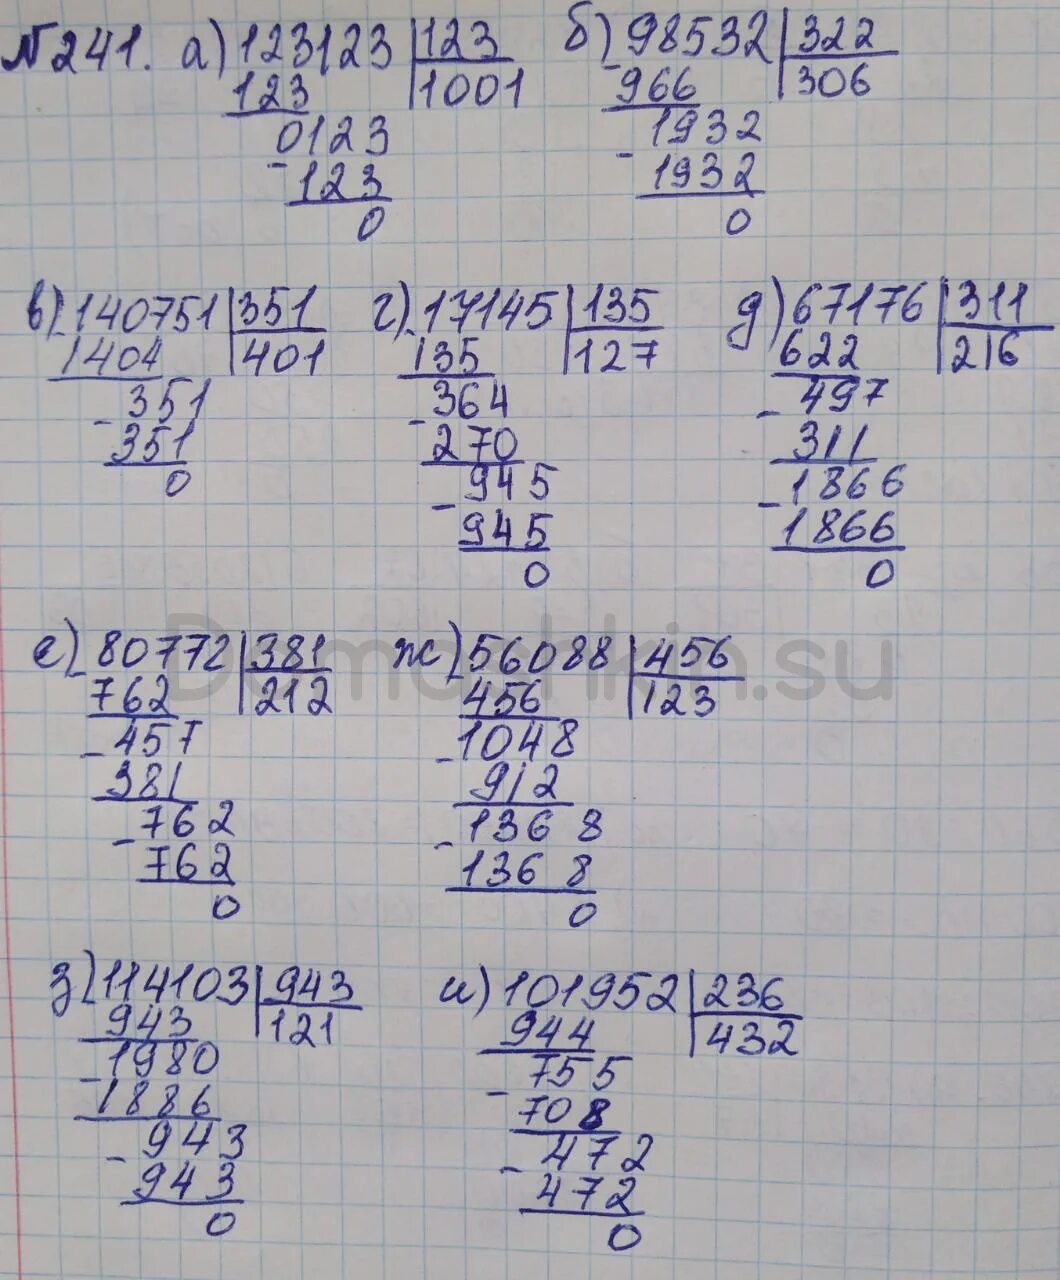 №241. а) 123123 | 123 б) 98532 | 322
123 | 1001 - 966 | 306
0123 1932
- 123 - 1932
0 0
в) - 140751 | 351 г) - 17145 | 135 д) 67176 | 311
1404 | 401 135 | 127 622 | 216
- 351 - 364 - 497
351 270 311
0 - 945 - 1866
945 1866
0 0
е) - 80772 | 381 ж) 56088 | 456
762 | 212 456 | 123
- 457 - 1048
381 912
- 762 - 1368
762 1368
0 0
Domashkin.su
з) 114103 | 943 и) 101952 | 236
943 | 121 944 | 432
- 1980 - 755
1886 708
- 943 - 472
943 472
0 0